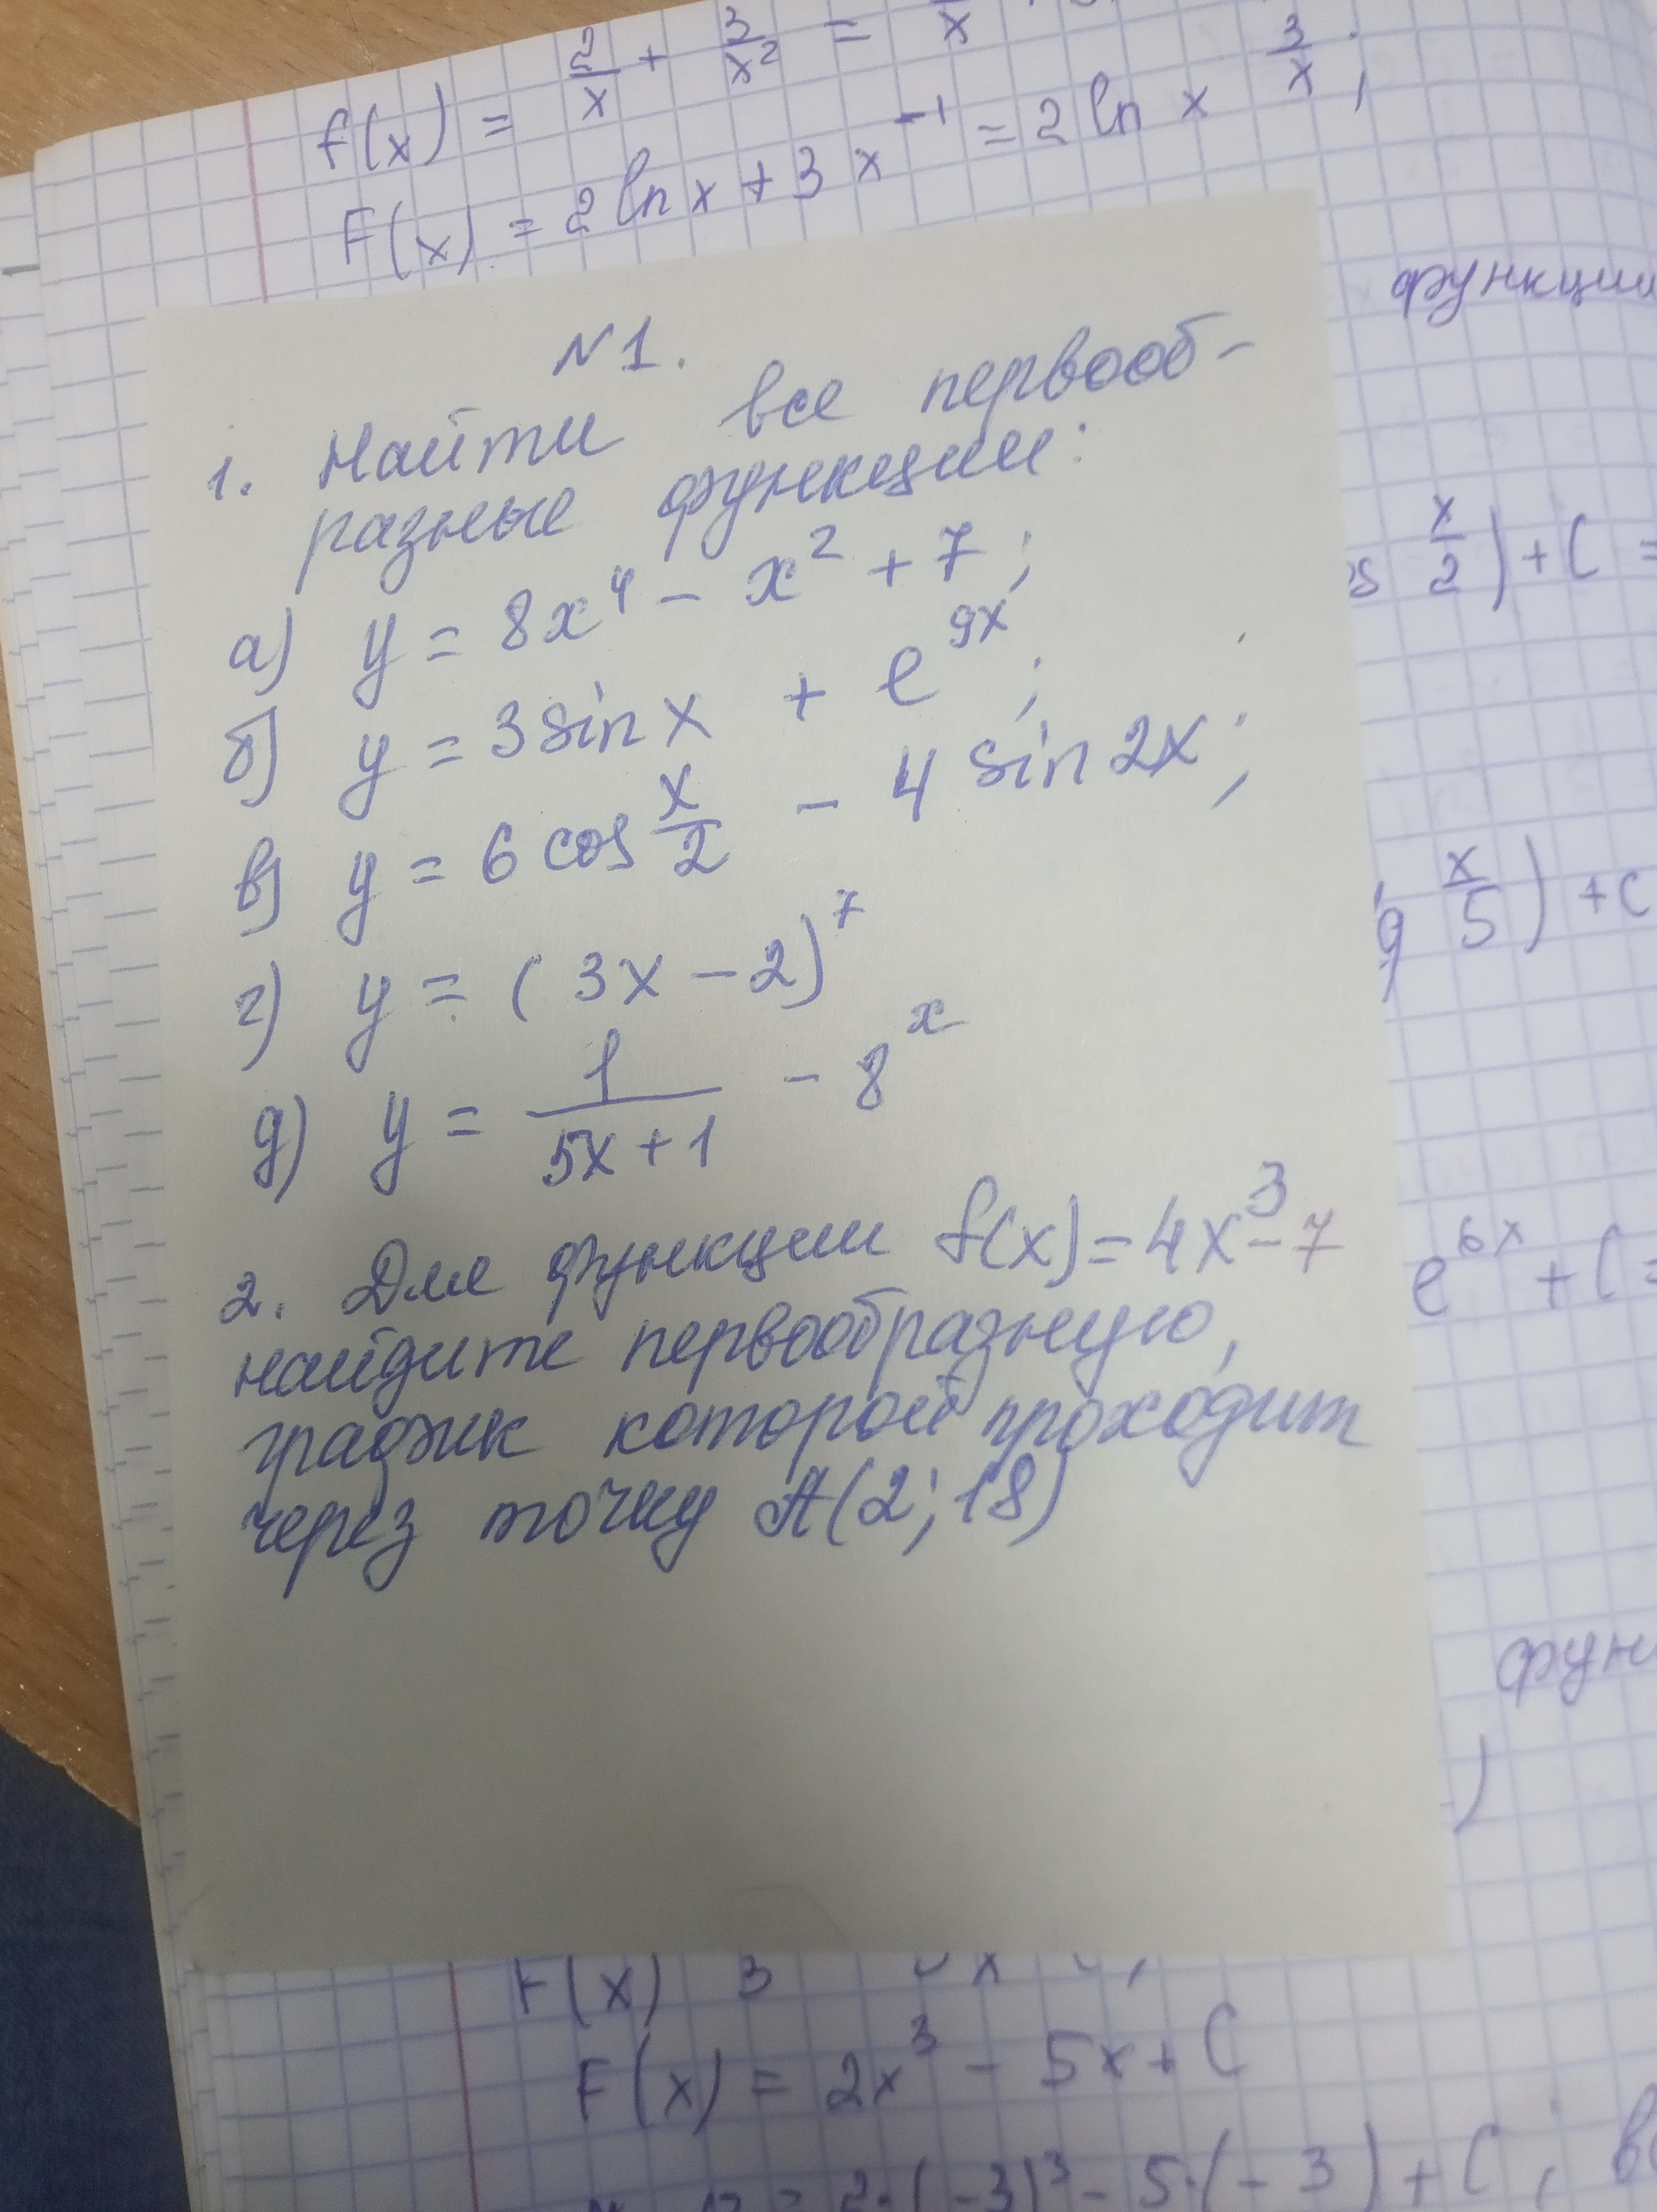 f(x) = 2/x + 3/x² = x
F(x) = 2 ln x + 3 x⁻¹ = 2 ln x 3/x ;
функции
N1.
1. Найти все первооб-
разные функции:
а) y = 8x⁴ - x² + 7 ;
x/2) + C =
б) y = 3 sin x + e⁹ˣ ;
в) y = 6 cos x/2 - 4 sin 2x ;
g x/5) + C
г) y = (3x - 2)⁷
д) y = 1/(5x + 1) - 8ˣ
2. Для функции f(x) = 4x³ - 7
e⁶ˣ + C =
найдите первообразную,
график которой проходит
через точку A(2; 18)
F(x) 3 x
F(x) = 2x³ - 5x + C
= 2·(-3)³ - 5·(-3) + C ;